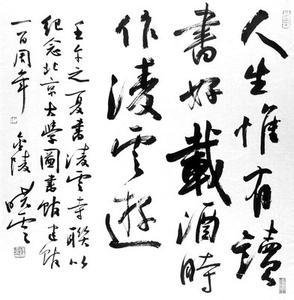 人生惟有讀
書好載酒時
作淩云遊
壬午之夏書淩云寺聯以
紀念北京大学圖書館建館
一百周年 金陵 晓云